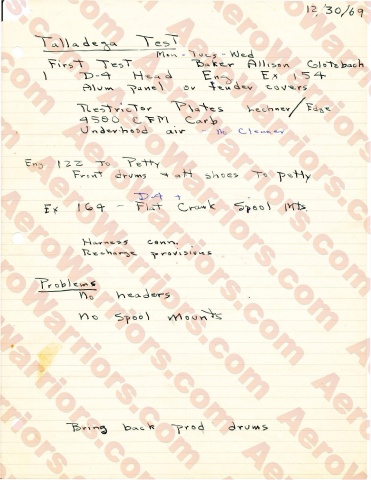 12/30/69
Talladega Test
Mon-Tues-Wed
First Test Baker Allison Glotzbach
1 D-4 Head Eng Ex 154
Alum panel or fender covers
Restrictor Plates Lechner/Edge
4500 CFM Carb
Underhood air no Cleaner
Eng 122 To Petty
Front drums + shoes To petty
D-4 +
Ex 164 - Flat Crank Spool Mts
Harness conn.
Recharge provisions
Problems
No headers
No Spool Mounts
Bring back prod drums
AeroWarriors.com